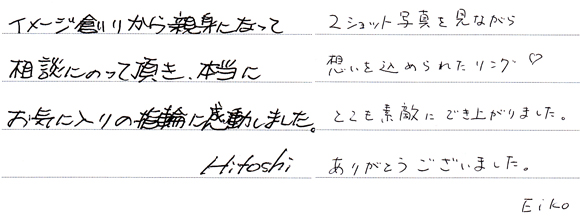 イメージ創りから親身になって
相談にのって頂き、本当に
お気に入りの指輪に感動しました。
Hitoshi
2ショット写真を見ながら
想いを込められたリング♡
とても素敵にでき上がりました。
ありがとうございました。
Eiko